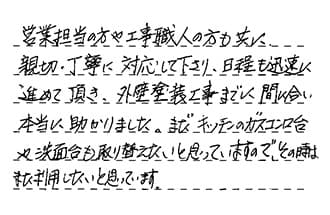 営業担当の方や工事職人の方も共に、
親切・丁寧に対応して下さり、日程も迅速に
進めて頂き、外壁塗装工事までに間に合い
本当に助かりました。まだキッチンのガスコンロ台
や洗面台も取り替えたいと思っていますので、その時は
また利用したいと思っています。